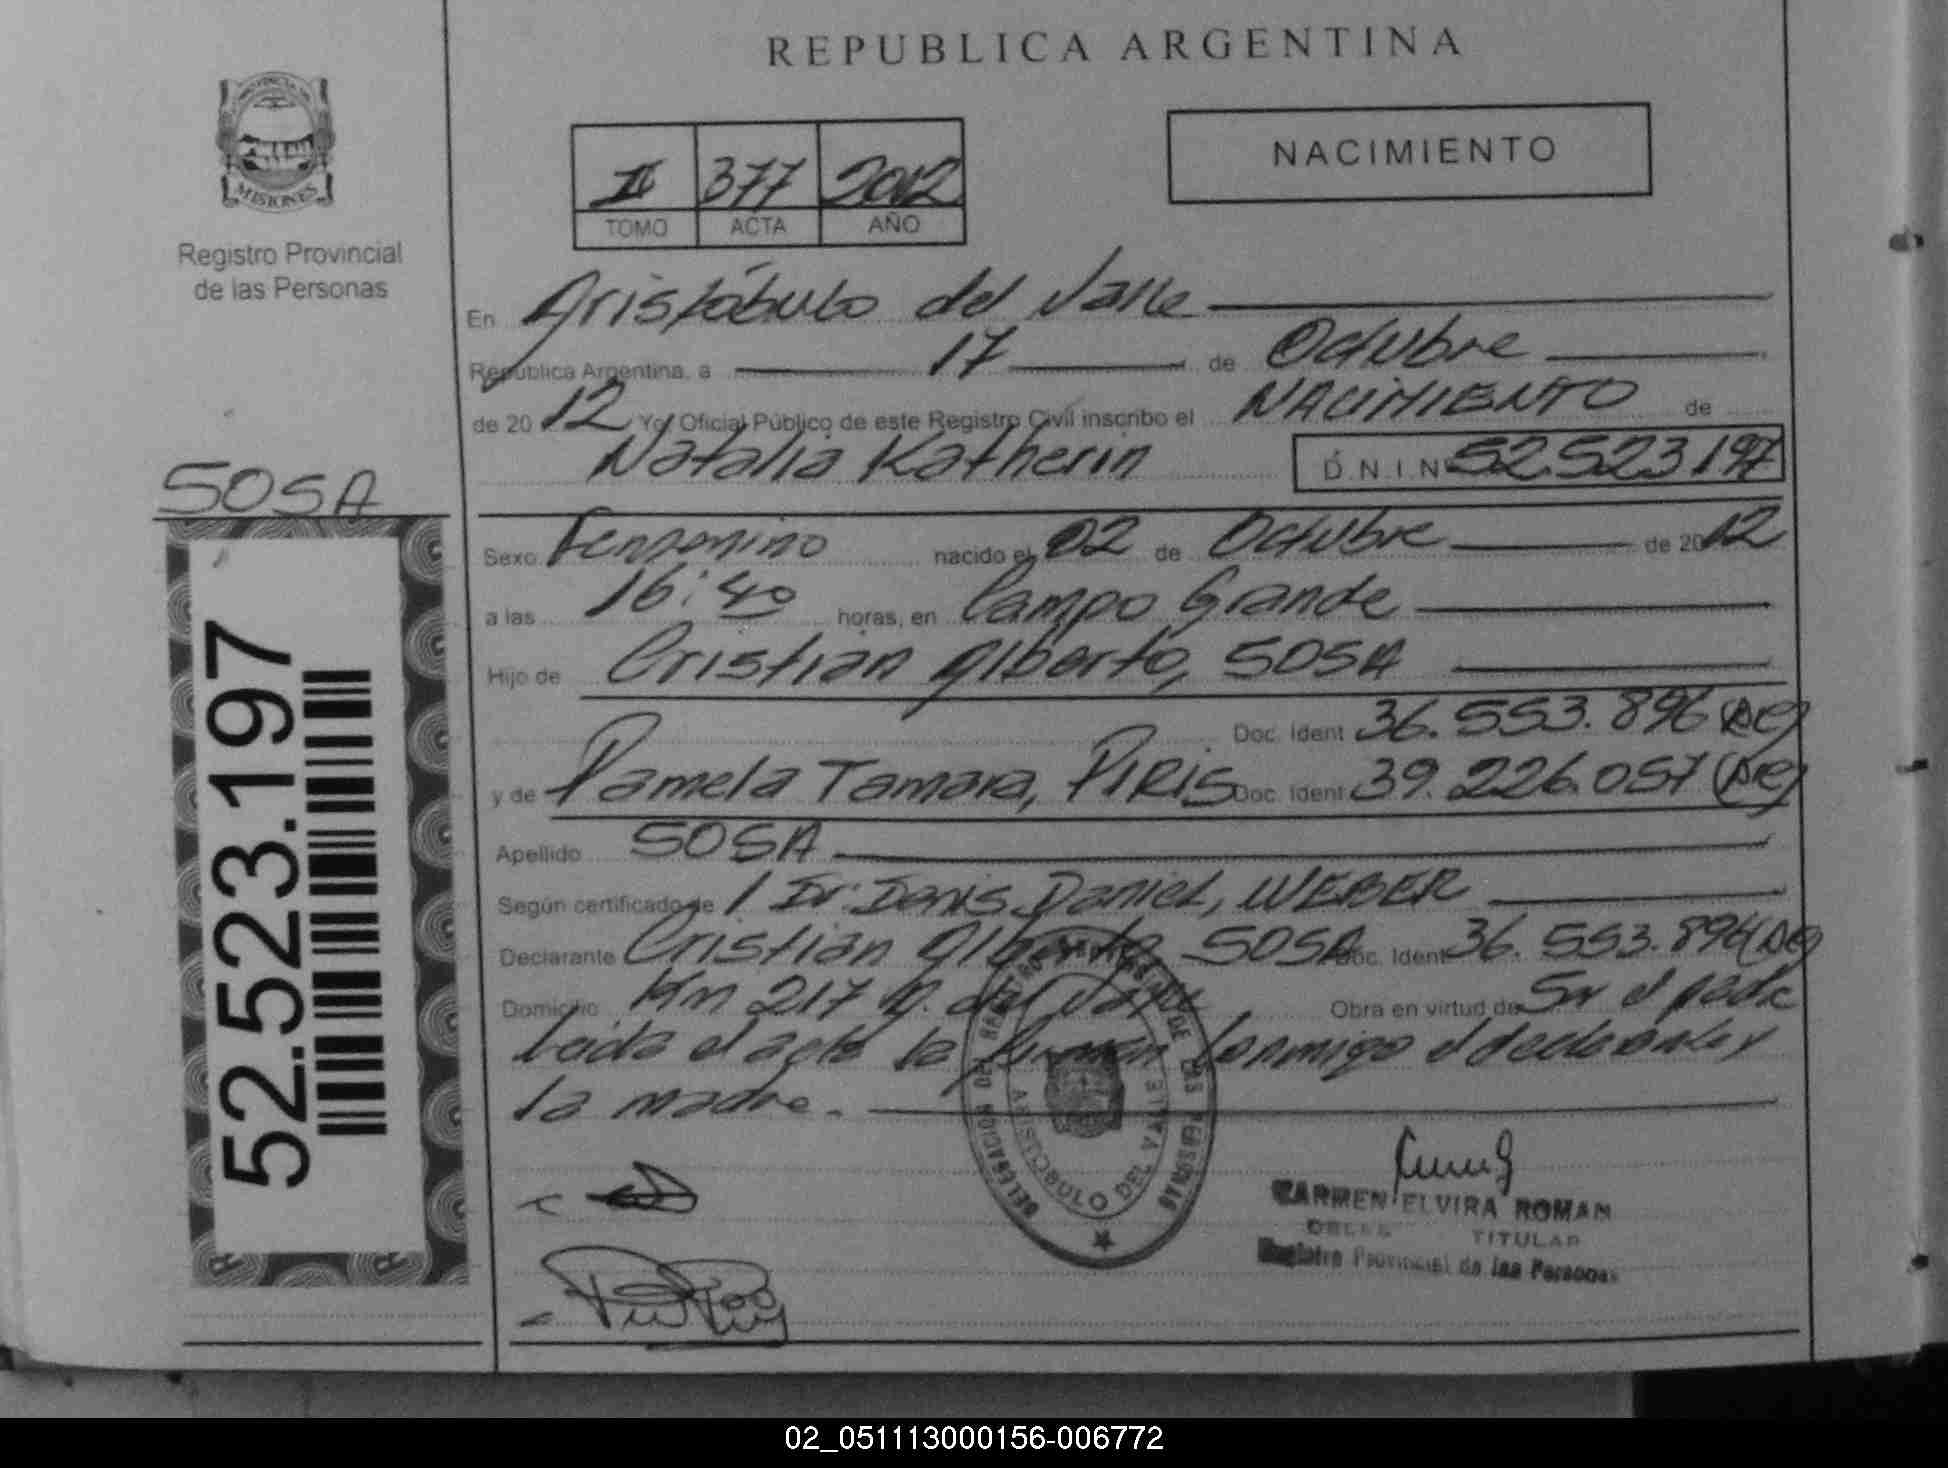 REPUBLICA ARGENTINA
MISIONES
Registro Provincial
de las Personas
II 377 2012
TOMO ACTA AÑO
NACIMIENTO
En Aristóbulo del Valle
República Argentina, a 17 de Octubre
de 20 12 Yo Oficial Público de este Registro Civil inscribo el NACIMIENTO de
Natalia Katherin D.N.I.N 52523197
SOSA
52.523.197
Sexo Femenino nacido el 02 de Octubre de 20 12
a las 16:40 horas, en Campo Grande
Hijo de Cristian Alberto, SOSA
Doc. Ident 36.553.896
y de Pamela Tamara, PIRIS Doc. Ident 39.226.057
Apellido SOSA
Según certificado de Dr. Denis Daniel, WEBER
Declarante Cristian Alberto SOSA Doc. Ident 36.553.896
Domicilio Km 217 A. del Valle Obra en virtud de Ser el padre
Leida el acta la firman conmigo el declarante y
la madre.
DELEGACION DEL REGISTRO PROVINCIAL DE LAS PERSONAS
ARISTOBULO DEL VALLE
CARMEN ELVIRA ROMAN
TITULAR
Registro Provincial de las Personas
02_051113000156-006772